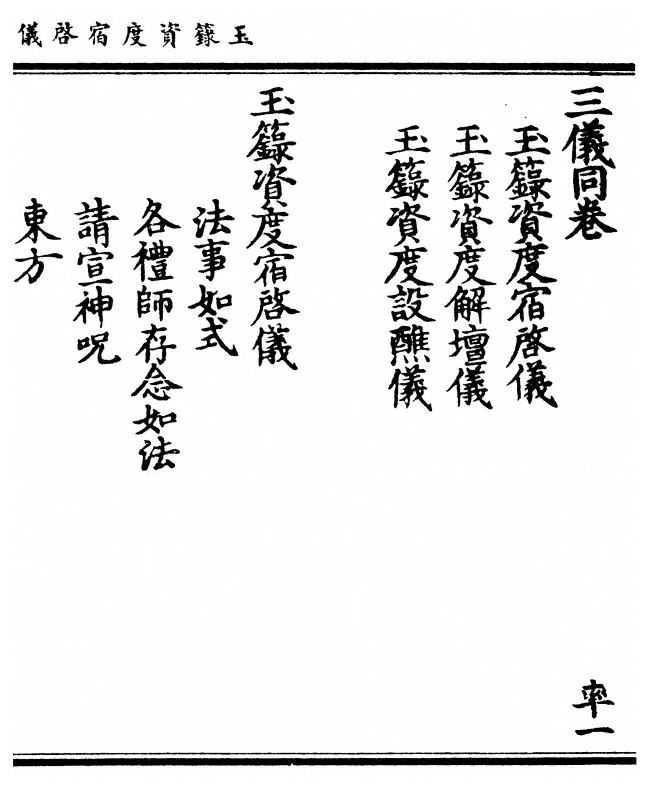 玉籙資度宿啓儀
三儀同卷
率一
玉籙資度宿啓儀
玉籙資度解壇儀
玉籙資度設醮儀
玉籙資度宿啓儀
法事如式
各禮師存念如法
請宣神呪
東方